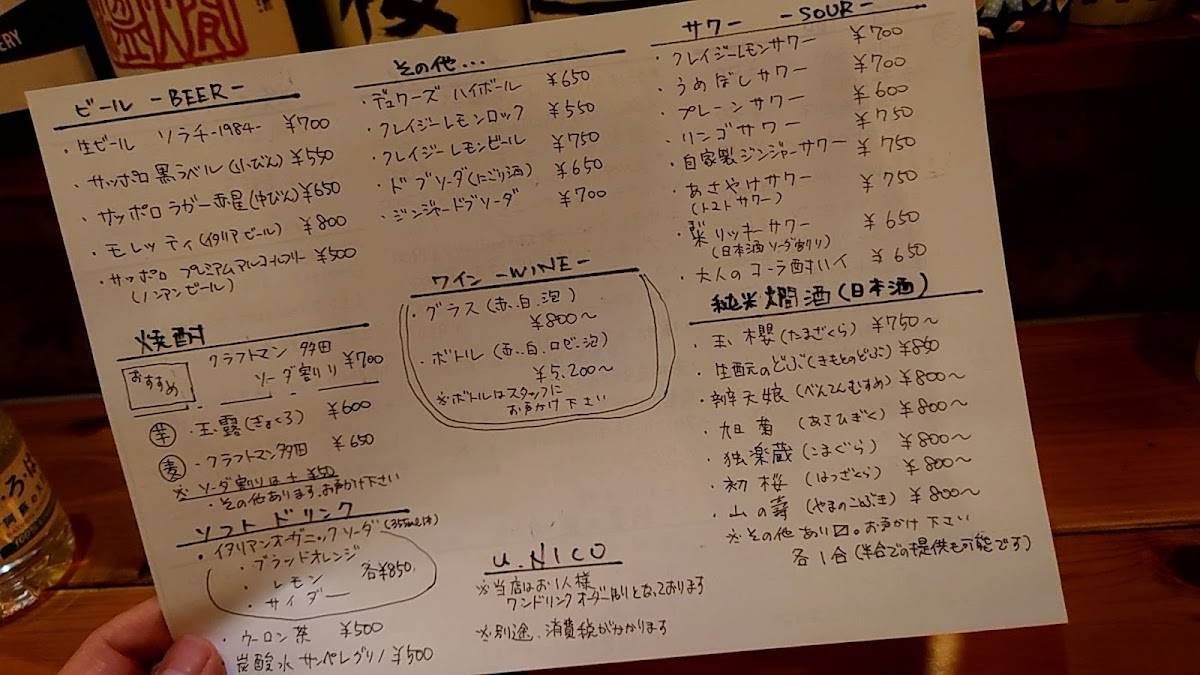 ビール -BEER-
・生ビール ソラチ-1984- ¥700
・サッポロ黒ラベル(小びん) ¥550
・サッポロラガー赤星(中びん) ¥650
・モレッティ(イタリアビール) ¥800
・サッポロ プレミアムアルコールフリー ¥500
(ノンアンビール)
焼酎
おすすめ
クラフトマン 多田
ソーダ割り ¥700
芋 ・玉露(ぎょくろ) ¥600
麦 ・クラフトマン多田 ¥650
※ソーダ割りは+¥50
・その他あります。お声かけ下さい
ソフトドリンク
・イタリアンオーガニックソーダ(355ml缶)
・ブラッドオレンジ
・レモン 各¥850
・サイダー
・ウーロン茶 ¥500
・炭酸水 サンペレグリノ ¥500
その他...
・デュワーズ ハイボール ¥650
・クレイジーレモンロック ¥550
・クレイジーレモンビール ¥750
・ドブソーダ(にごり酒) ¥650
・ジンジャードブソーダ ¥700
ワイン -WINE-
・グラス(赤.白.泡)
¥800〜
・ボトル(赤.白.ロゼ.泡)
¥5.200〜
※ボトルはスタッフに
お声かけ下さい
u.NICO
※当店はお1人様
ワンドリンクオーダー制となっております
※別途、消費税がかかります
サワー -SOUR-
・クレイジーレモンサワー ¥700
・うめぼしサワー ¥700
・プレーンサワー ¥600
・リンゴサワー ¥750
・自家製ジンジャーサワー ¥750
・あさやけサワー ¥750
(トマトサワー)
・米リッキーサワー ¥650
(日本酒ソーダ割り)
・大人のコーラ酎ハイ ¥650
純米燗酒(日本酒)
・玉櫻(たまざくら) ¥750〜
・生酛のどぶ(きもとのどぶ) ¥850
・辨天娘(べんてんむすめ) ¥800〜
・旭菊(あさひぎく) ¥800〜
・独楽蔵(こまぐら) ¥800〜
・初桜(はつざくら) ¥800〜
・山の壽(やまのことぶき) ¥800〜
※その他あり〼。お声かけ下さい
各1合(半合での提供も可能です)